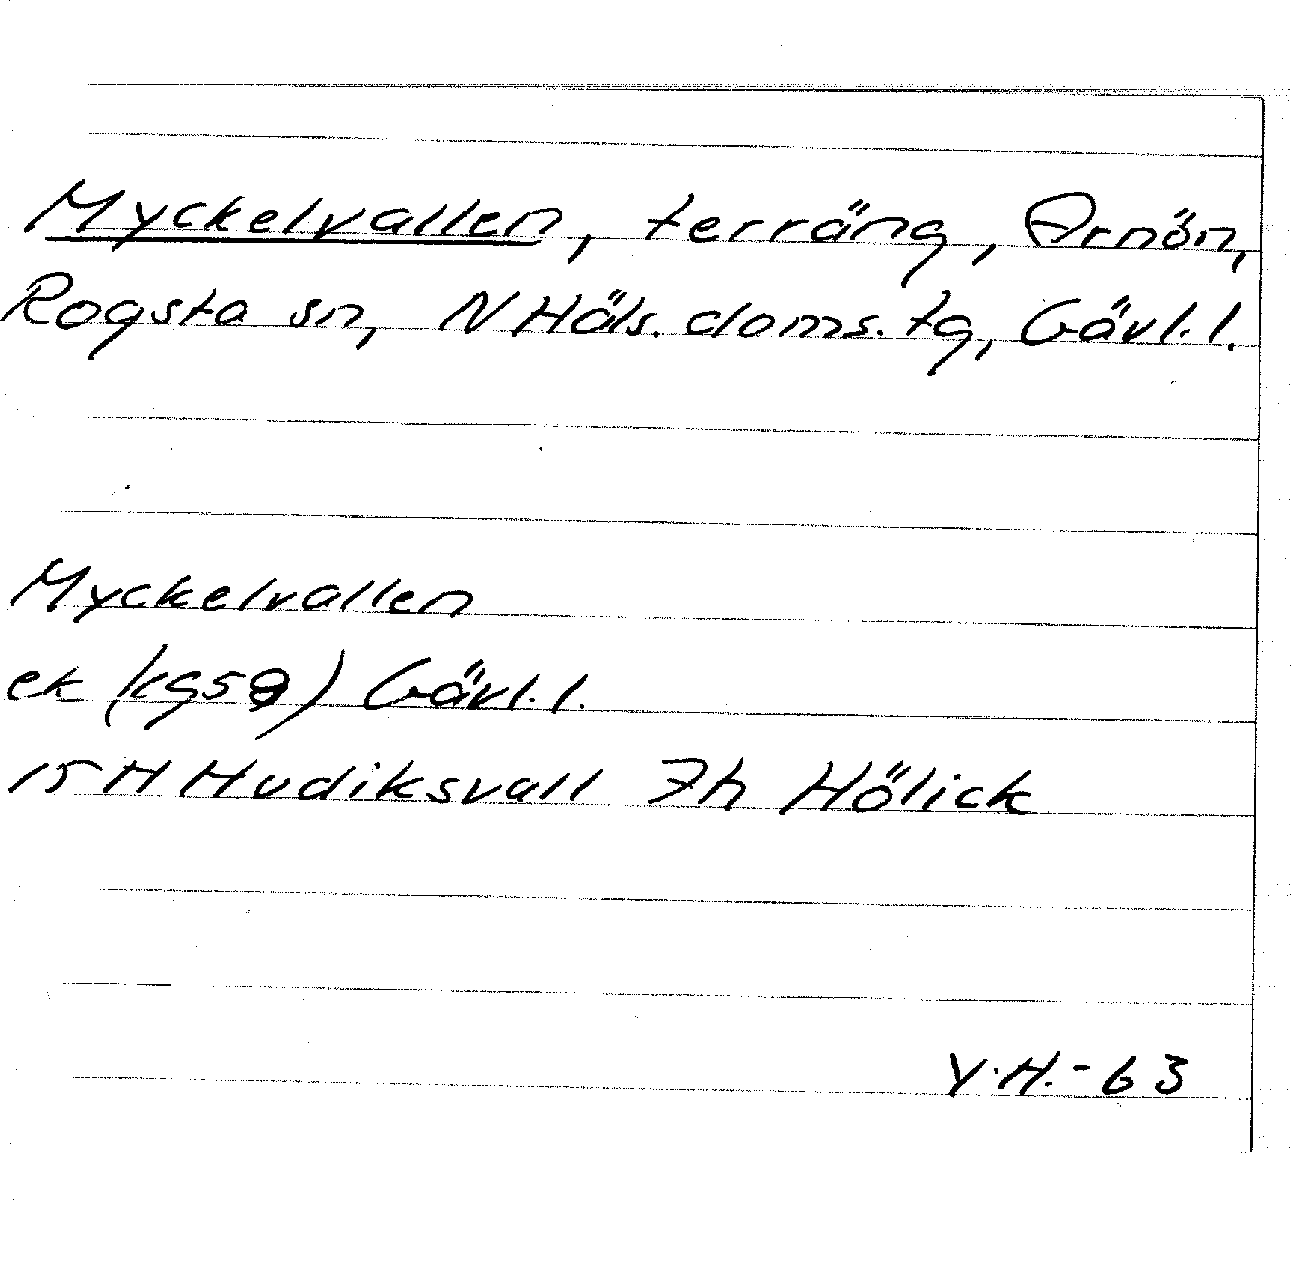 Myckelvallen, terräng, Arnön,
Rogsta sn, N Häls. doms. tg, Gävl. l.
Myckelvallen
ek (kgs9) Gävl. l.
15 H Hudiksvall 7h Hölick
Y.H.-63